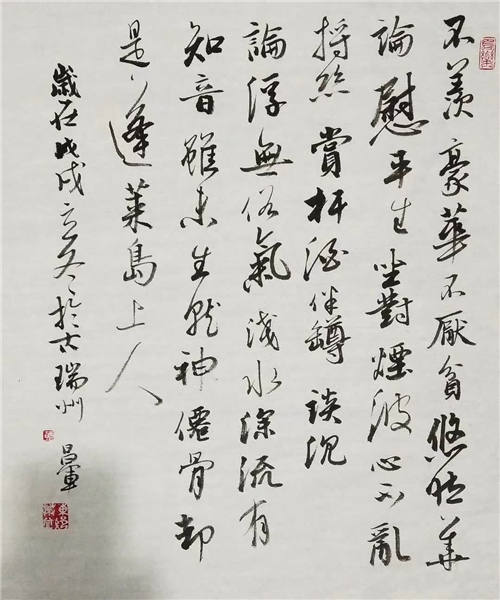 不羨豪華不厭貧悠
論慰平生坐對煙波心不亂
捋絲賞杯酒伴罇談沉
論浮無俗氣淺水深流有
知音雖未生就神僊骨却
是蓬萊島上人
歲在戊戌立冬於古瑞州
昌軍